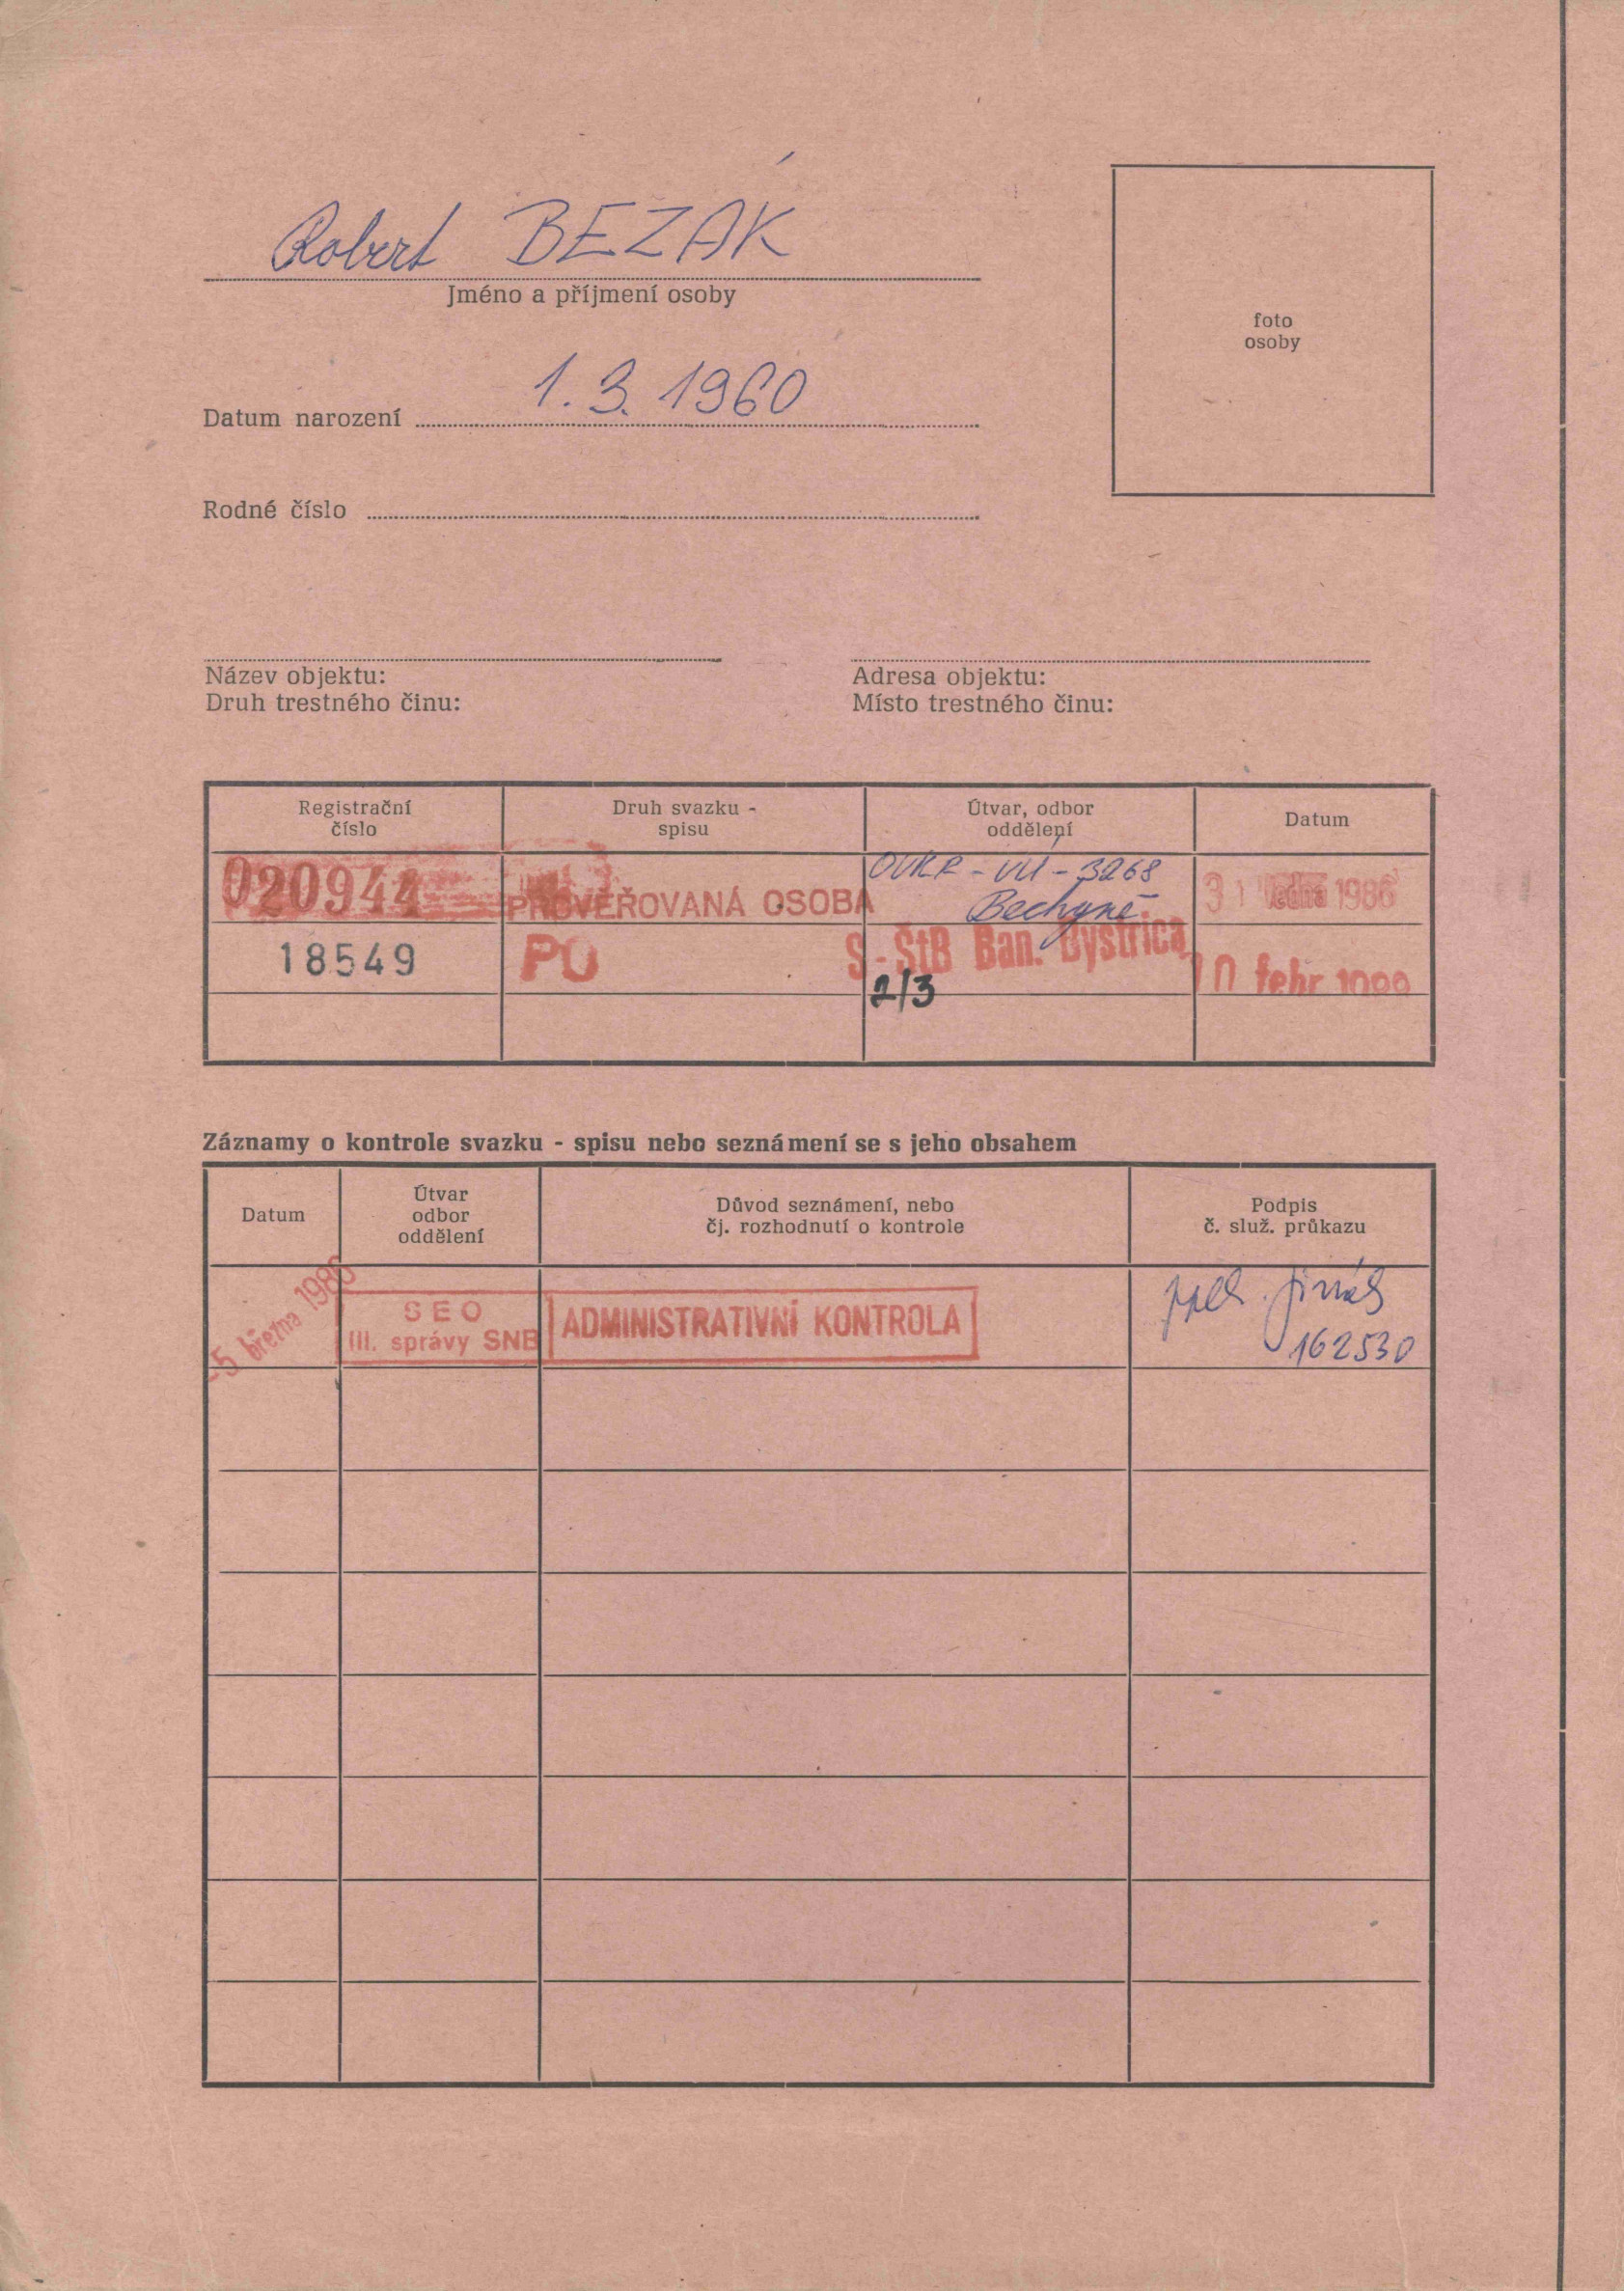 Robert BEZÁK
Jméno a příjmení osoby
foto
osoby
1.3.1960
Datum narození
Rodné číslo
Název objektu:
Druh trestného činu:
Adresa objektu:
Místo trestného činu:
Registrační
číslo
Druh svazku -
spisu
Útvar, odbor
oddělení
Datum
020944
PROVĚŘOVANÁ OSOBA
OVKR - VÚ - 3268
Bechyně
31 ledna 1986
18549
PO
S-ŠtB Ban. Bystrica
2/3
febr
Záznamy o kontrole svazku - spisu nebo seznámení se s jeho obsahem
Datum
Útvar
odbor
oddělení
Důvod seznámení, nebo
čj. rozhodnutí o kontrole
Podpis
č. služ. průkazu
-5 března 1986
SEO
III. správy SNB
ADMINISTRATIVNÍ KONTROLA
162530